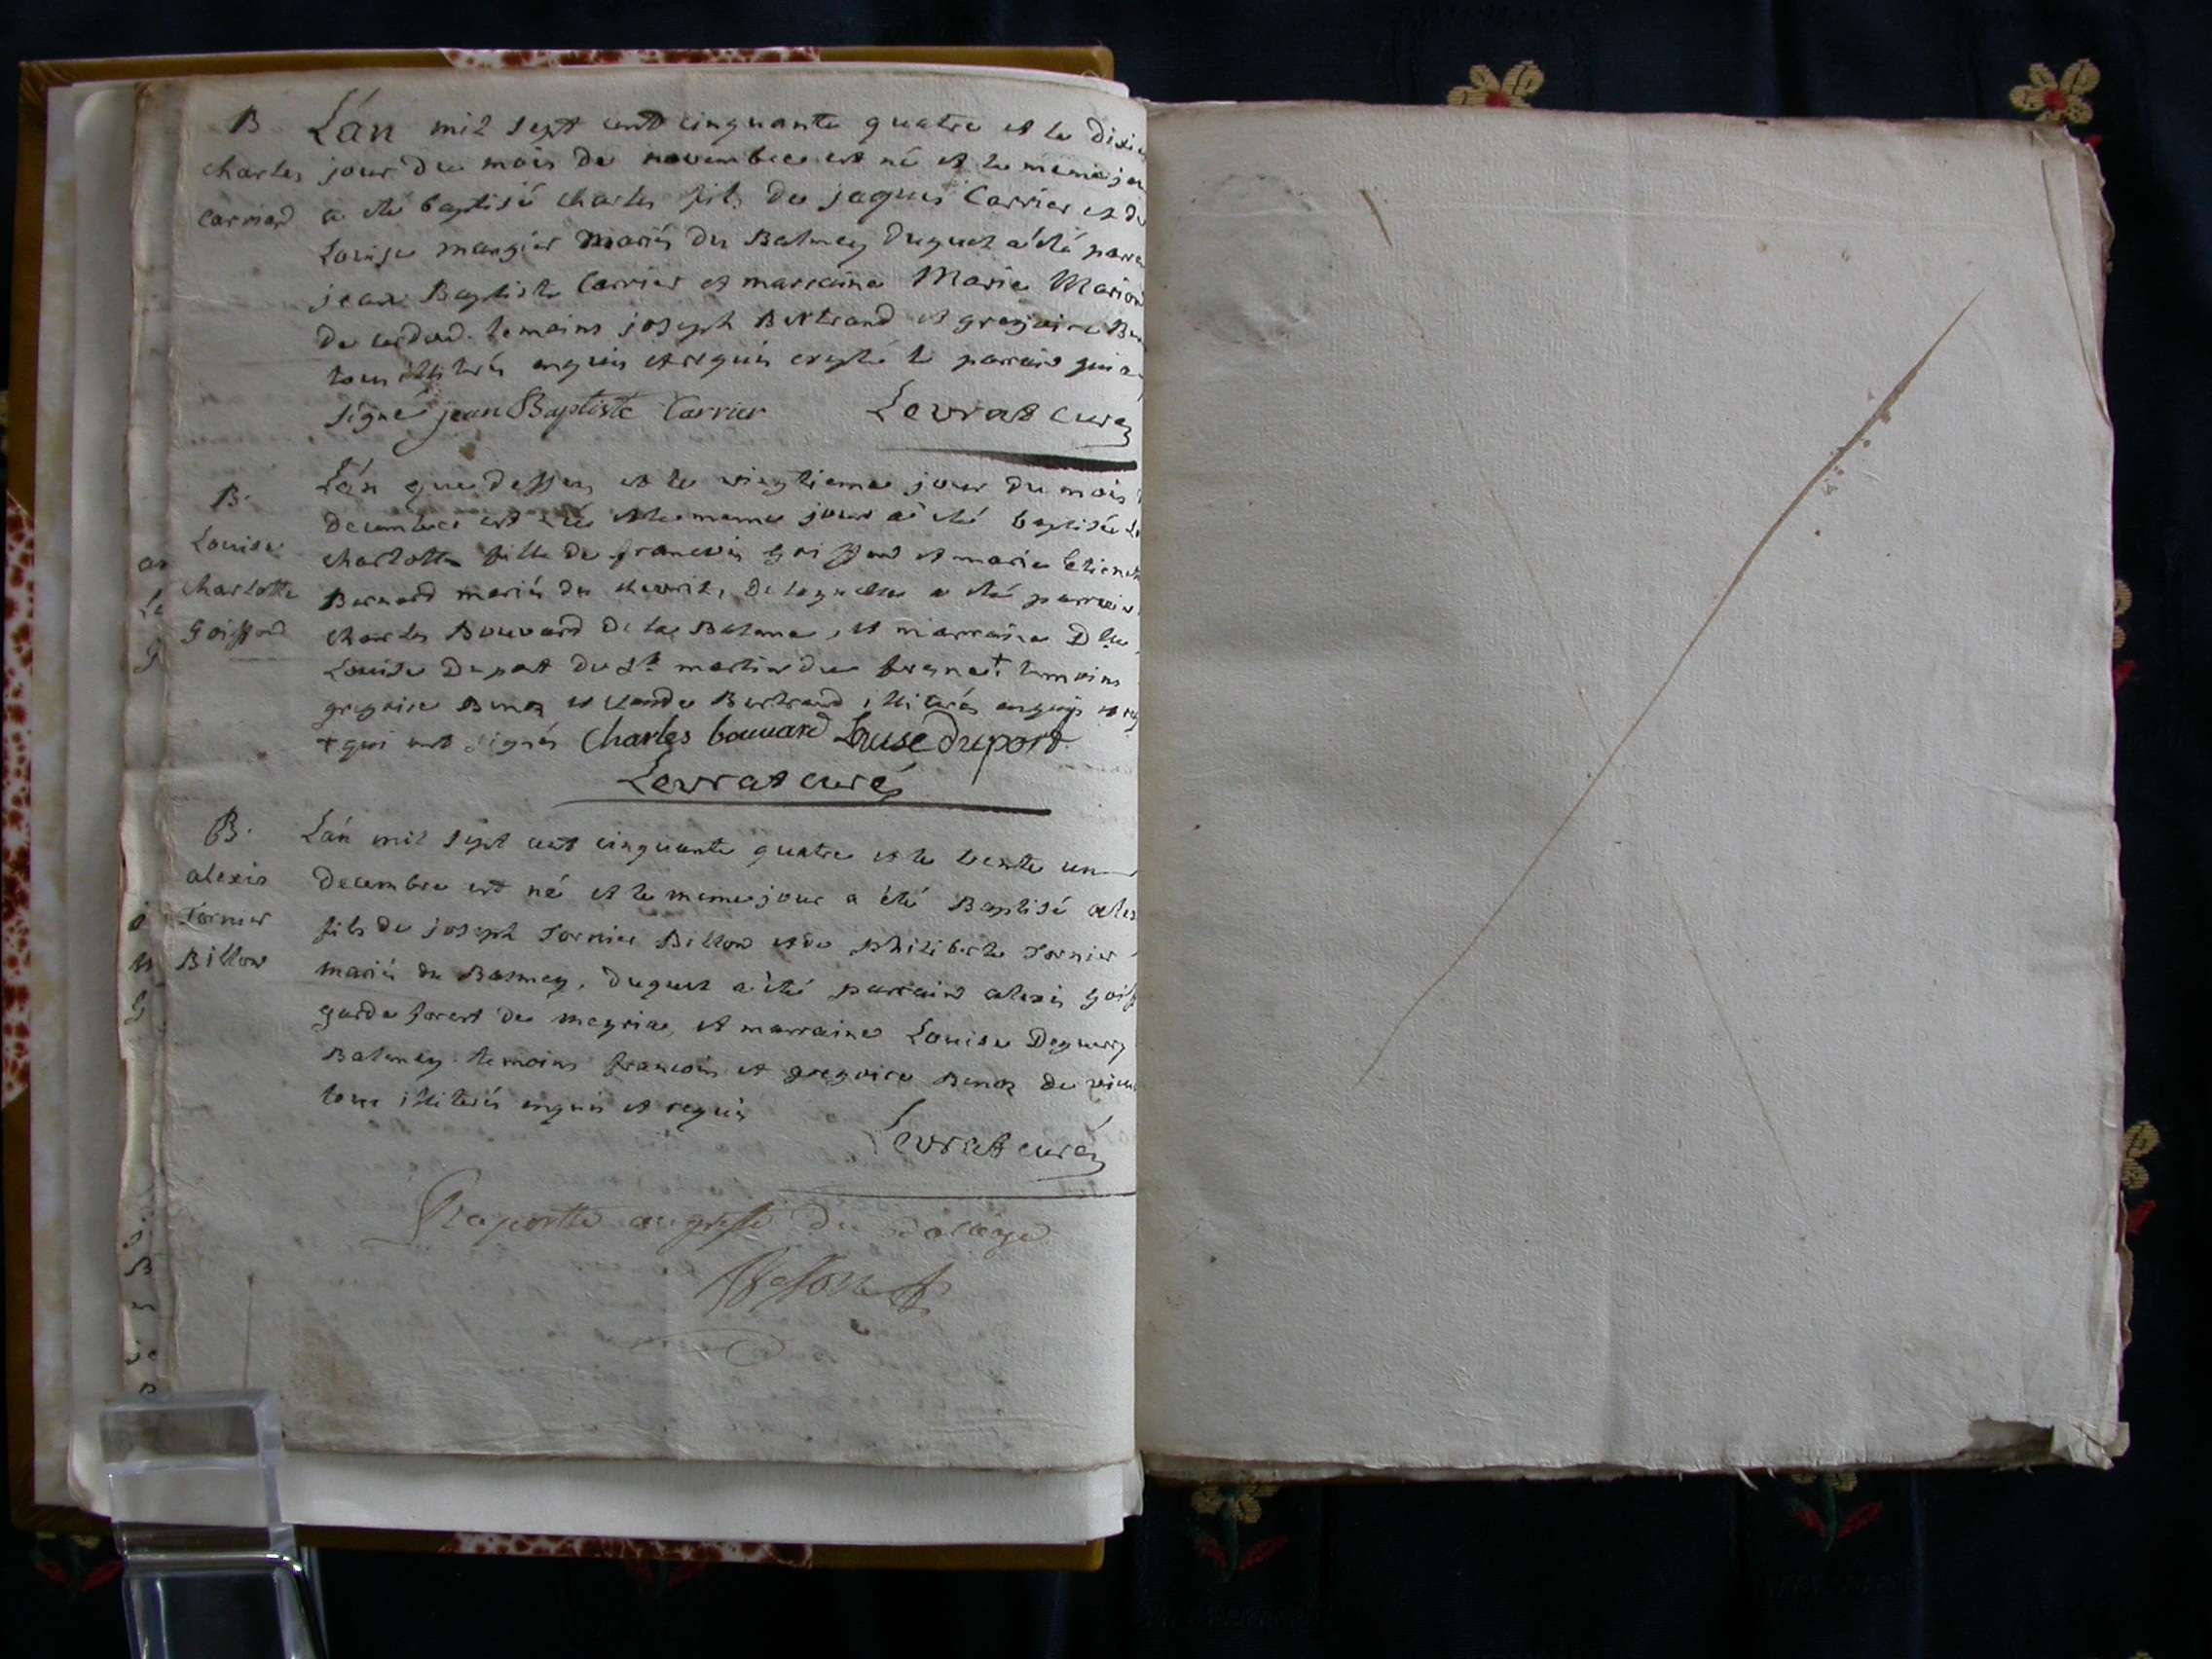 B
Charles
Carrier
L'an mil sept cent cinquante quatre et le dixie
jour du mois de novembre est né et le meme jou
a été baptisé charles fils de jaques Carrier et de
Louise mangier mariés du Balmey duquel a été parra
jean Baptiste Carrier et marraine Marie Marion
de temoins joseph Bertrand et gregoire Be
tous illiterés enquis et requis excepté le parrain qui a
signé jean Baptiste Carrier Levrat curé
B.
Louise
charlotte
goiffon
L'an que dessus et le vingtieme jour du mois
decembre est née et le meme jour a été baptisée Lo
charlotte fille de francois goiffon et marie Etienet
Bernard mariés du de laquelle a été parrain
charles Bouvard de la Balme, et marraine Dlle
Louise Duport de St martin du fresne + temoins
gregoire Benoz et claude Bertrand illiterés enquis et req
+ qui ont signés Charles bouvard Louise duport
Levrat curé
B.
alexis
Tornier
Billon
L'an mil sept cent cinquante quatre et le trente un
decembre est né et le meme jour a été Baptisé alex
fils de joseph Tornier Billon et de philiberte Tornier
mariés du Balmey, duquel a été parrain alexis goiff
garde forest de meyriac, et marraine Louise Deguerry
Balmey temoins francois et gregoire Benoz de vieu
tous illiterés enquis et requis
Levrat curé
Raporté au greffe du